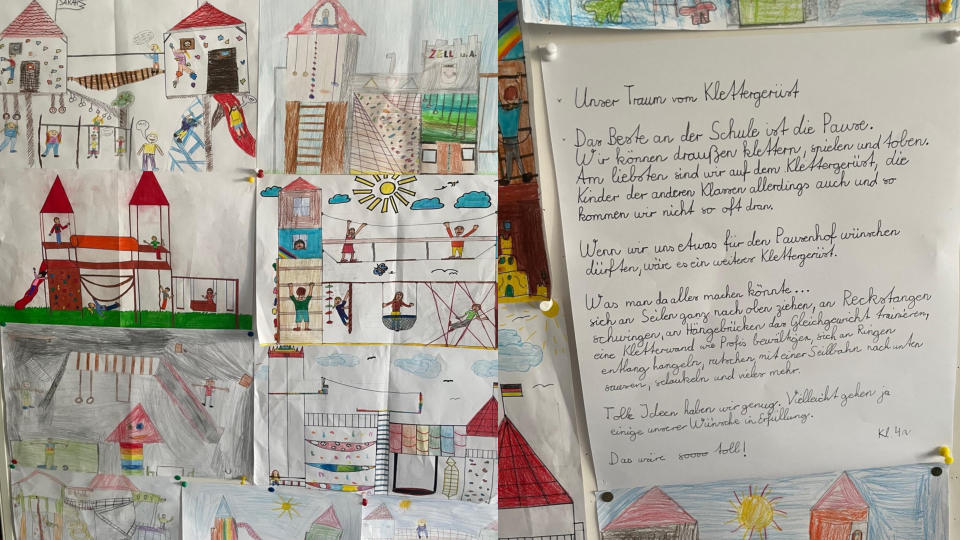 SARAHS
ZELL u.A.
Unser Traum vom Klettergerüst
Das Beste an der Schule ist die Pause.
Wir können draußen klettern, spielen und toben.
Am liebsten sind wir auf dem Klettergerüst, die
Kinder der anderen Klassen allerdings auch und so
kommen wir nicht so oft dran.
Wenn wir uns etwas für den Pausenhof wünschen
dürften, wäre es ein weiteres Klettergerüst.
Was man da alles machen könnte...
sich an Seilen ganz nach oben ziehen, an Reckstangen
schwingen, an Hängebrücken das Gleichgewicht trainieren,
eine Kletterwand wie Profis bewältigen, sich an Ringen
entlang hangeln, rutschen, mit einer Seilbahn nach unten
sausen, schaukeln und vieles mehr.
Tolle Ideen haben wir genug. Vielleicht gehen ja
einige unserer Wünsche in Erfüllung.
Das wäre soooo toll!